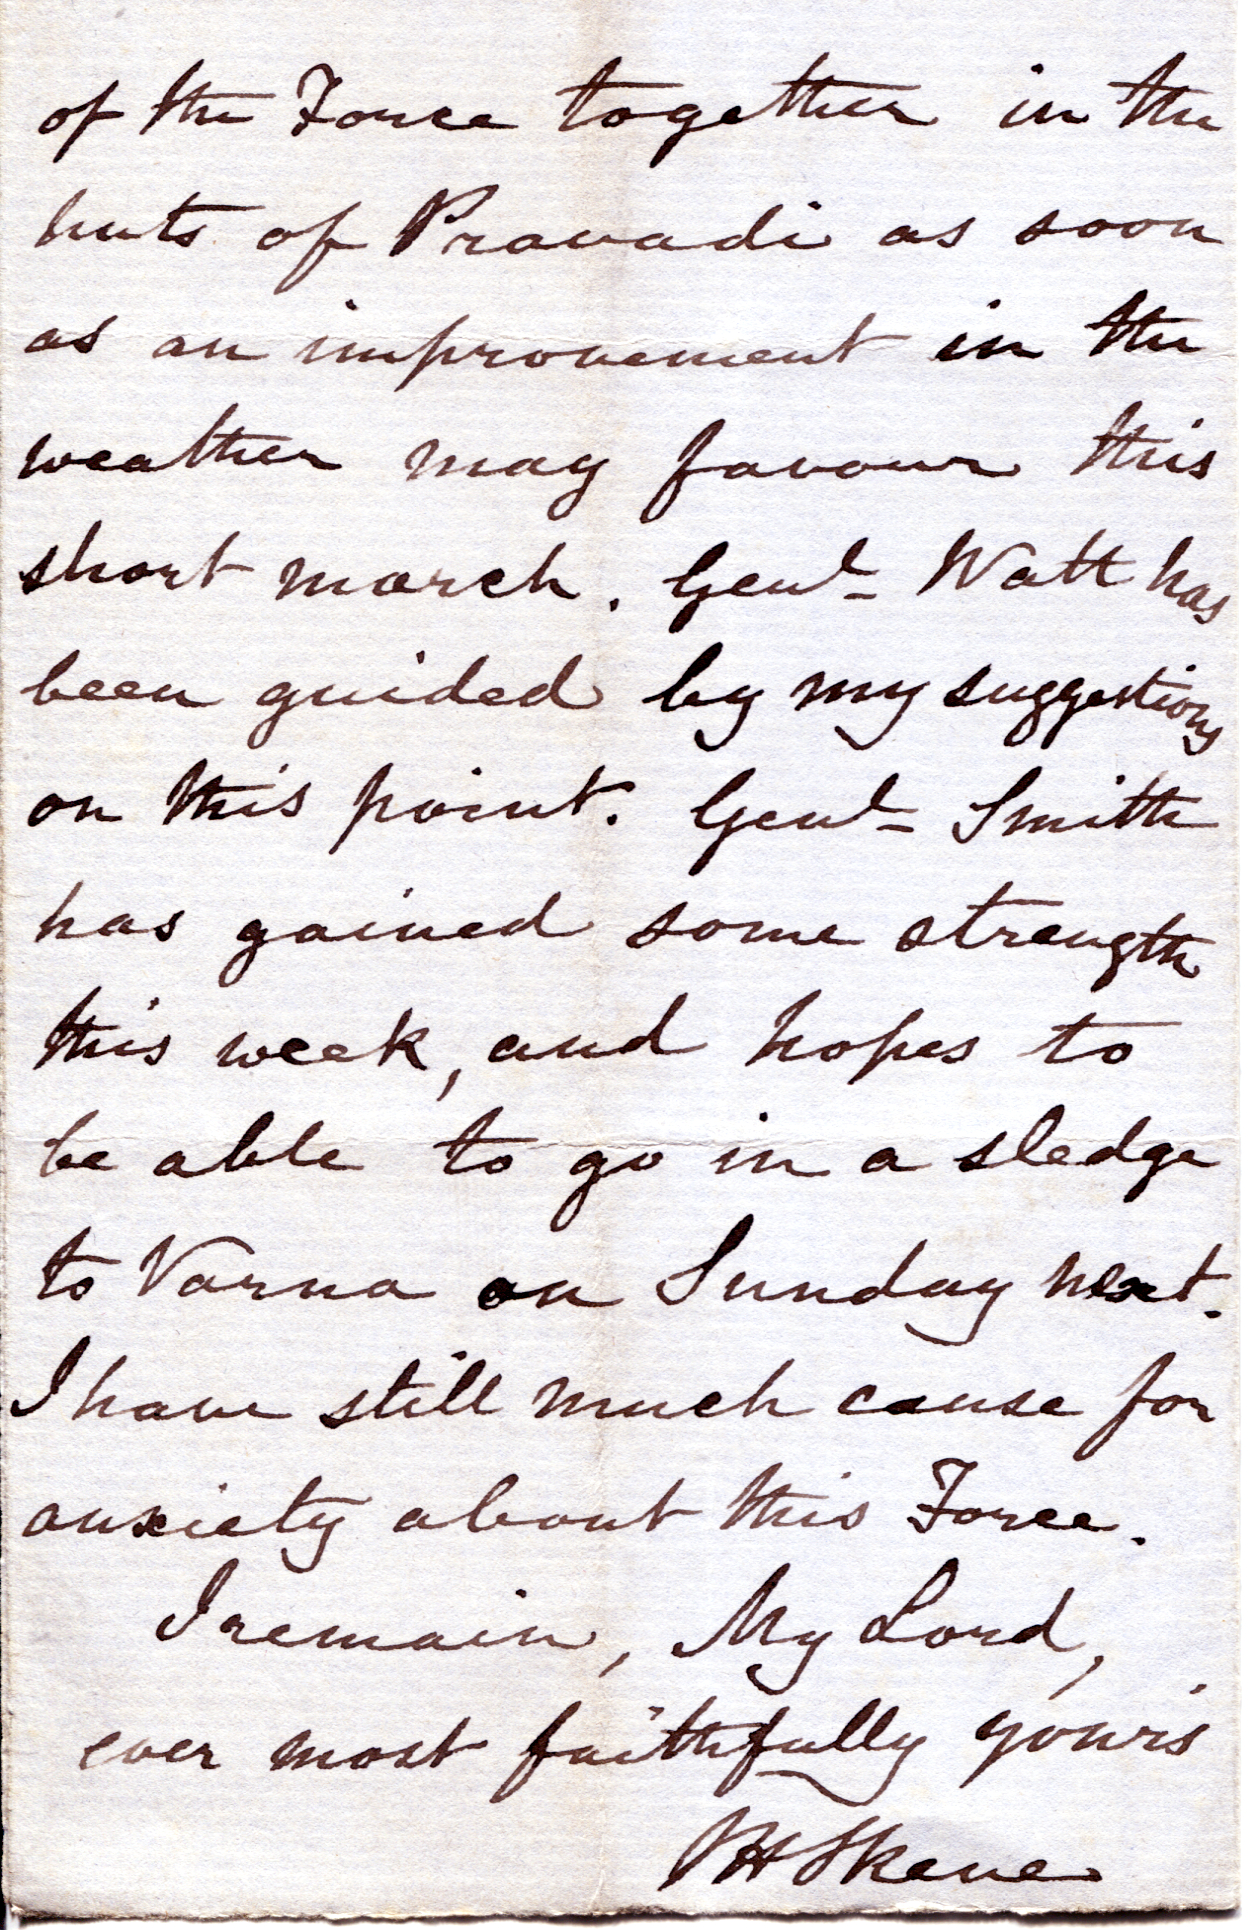 of the Force together in the
huts of Pravadi as soon
as an improvement in the
weather may favour this
short march. Genl- Watt has
been guided by my suggestions
on this point. Genl- Smith
has gained some strength
this week, and hopes to
be able to go in a sledge
to Varna on Sunday next.
I have still much cause for
anxiety about this Force.
I remain, My Lord,
ever most faithfully yours
JH Skene